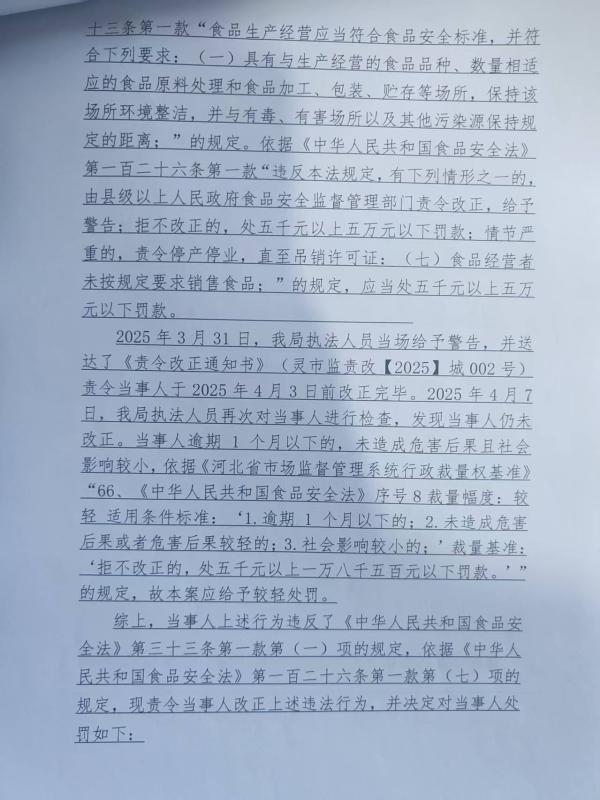 十三条第一款“食品生产经营应当符合食品安全标准，并符
合下列要求：（一）具有与生产经营的食品品种、数量相适
应的食品原料处理和食品加工、包装、贮存等场所，保持该
场所环境整洁，并与有毒、有害场所以及其他污染源保持规
定的距离；”的规定。依据《中华人民共和国食品安全法》
第一百二十六条第一款“违反本法规定，有下列情形之一的，
由县级以上人民政府食品安全监督管理部门责令改正，给予
警告；拒不改正的，处五千元以上五万元以下罚款；情节严
重的，责令停产停业，直至吊销许可证：（七）食品经营者
未按规定要求销售食品；”的规定，应当处五千元以上五万
元以下罚款。
2025 年 3 月 31 日，我局执法人员当场给予警告，并送
达了《责令改正通知书》（灵市监责改【2025】城 002 号）
责令当事人于 2025 年 4 月 3 日前改正完毕。2025 年 4 月 7
日，我局执法人员再次对当事人进行检查，发现当事人仍未
改正。当事人逾期 1 个月以下的，未造成危害后果且社会
影响较小，依据《河北省市场监督管理系统行政裁量权基准》
“66、《中华人民共和国食品安全法》序号 8 裁量幅度：较
轻 适用条件标准：‘1.逾期 1 个月以下的；2.未造成危害
后果或者危害后果较轻的；3.社会影响较小的；’裁量基准：
‘拒不改正的，处五千元以上一万八千五百元以下罚款。’”
的规定，故本案应给予较轻处罚。
综上，当事人上述行为违反了《中华人民共和国食品安
全法》第三十三条第一款第（一）项的规定，依据《中华人
民共和国食品安全法》第一百二十六条第一款第（七）项的
规定，现责令当事人改正上述违法行为，并决定对当事人处
罚如下：